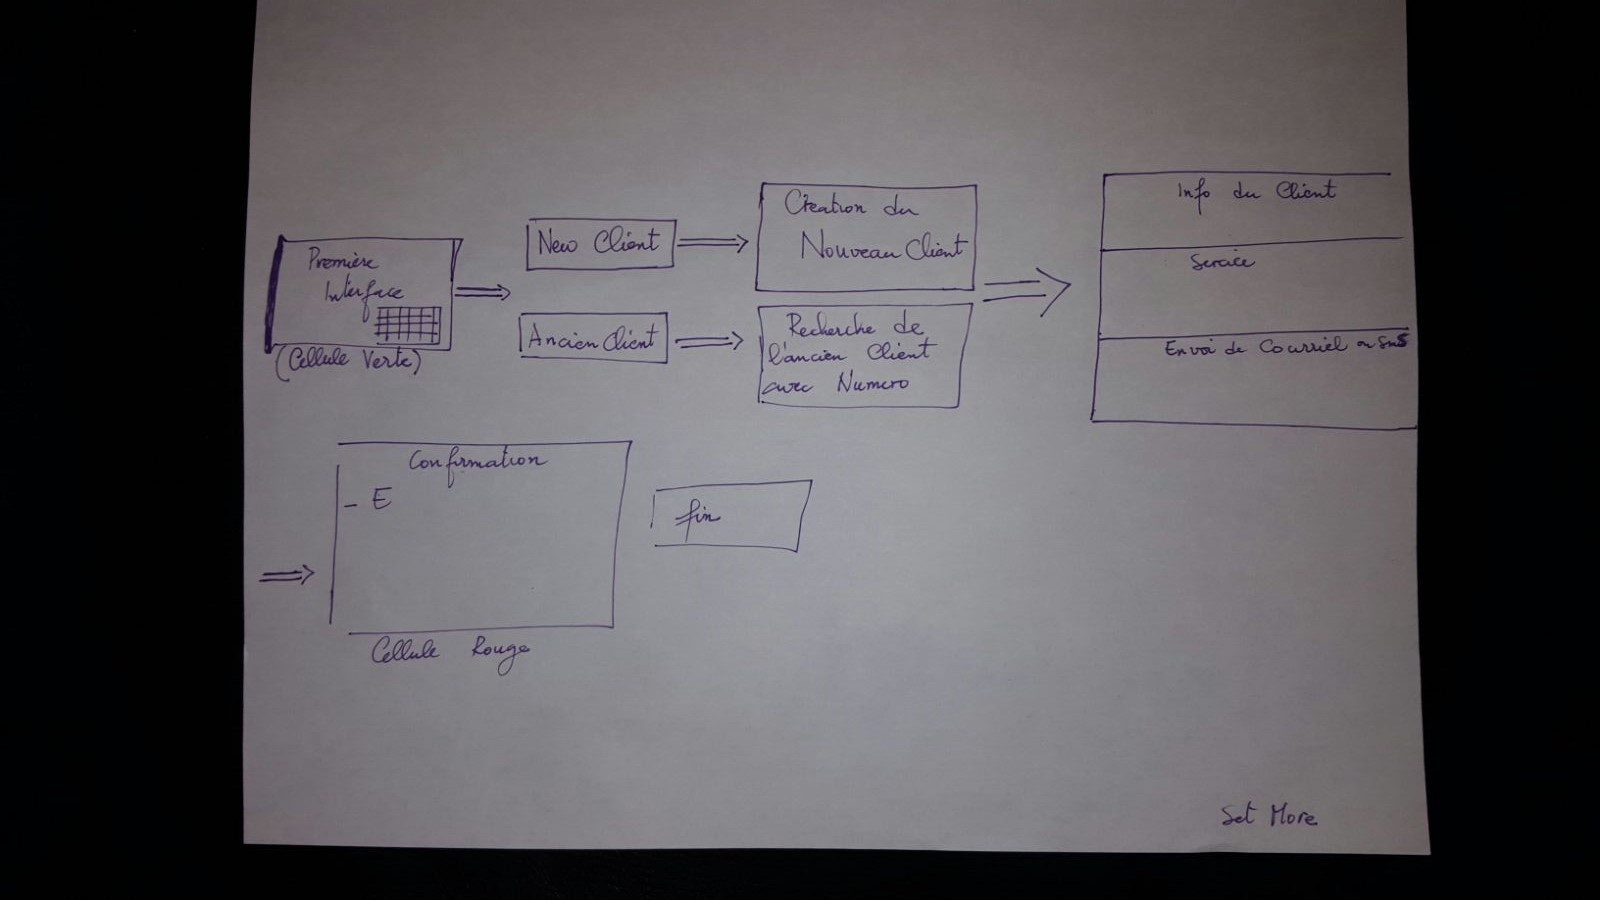 Première
Interface
(Cellule Verte)
New Client
Ancien Client
Creation du
Nouveau Client
Recherche de
l'ancien Client
avec Numero
Info du Client
Service
Envoi de Courriel ou SMS
Confirmation
- E
Cellule Rouge
fin
Set More